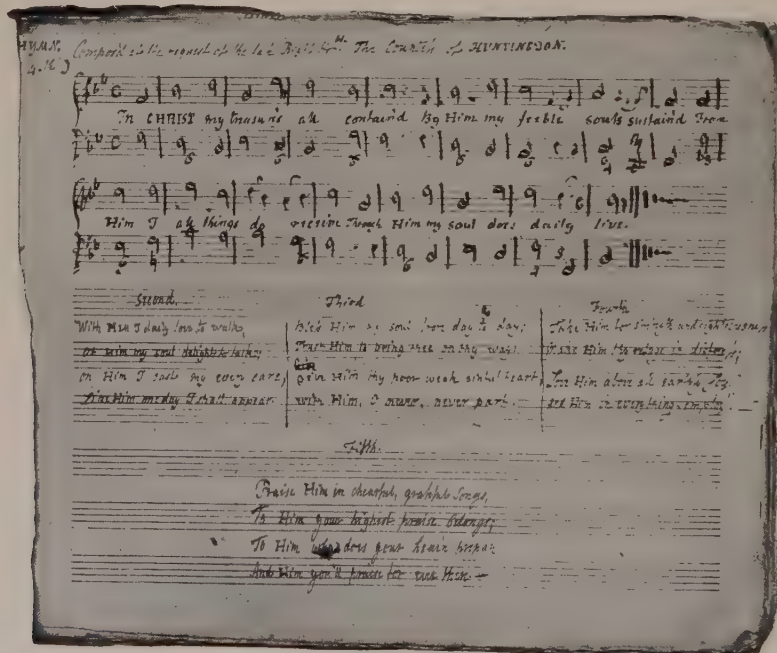 HYMN. Compos'd at the request of the late Right Honble. The Countess of HUNTINGDON.
4.
In CHRIST my treasure's all contain'd By Him my feeble soul's sustain'd From
Him I all things do receive Through Him my soul does daily live.
Second.
With Him I daily love to walk,
Of Him my soul delights to talk;
On Him I cast my every care,
Like Him one day I shall appear.
Third
Bless Him my soul from day to day;
Trust Him to bring thee on thy way.
Give Him thy poor weak sinful heart,
with Him, I never, never part.
Fourth
Take Him for strength and righteousness
Make Him thy refuge in distress;
Love Him above all earthly joy
And Him in everything employ.
Fifth.
Praise Him in chearful, grateful Songs,
To Him your highest praise belongs;
To Him who does your heav'n prepare
And Him you'll praise for ever there.